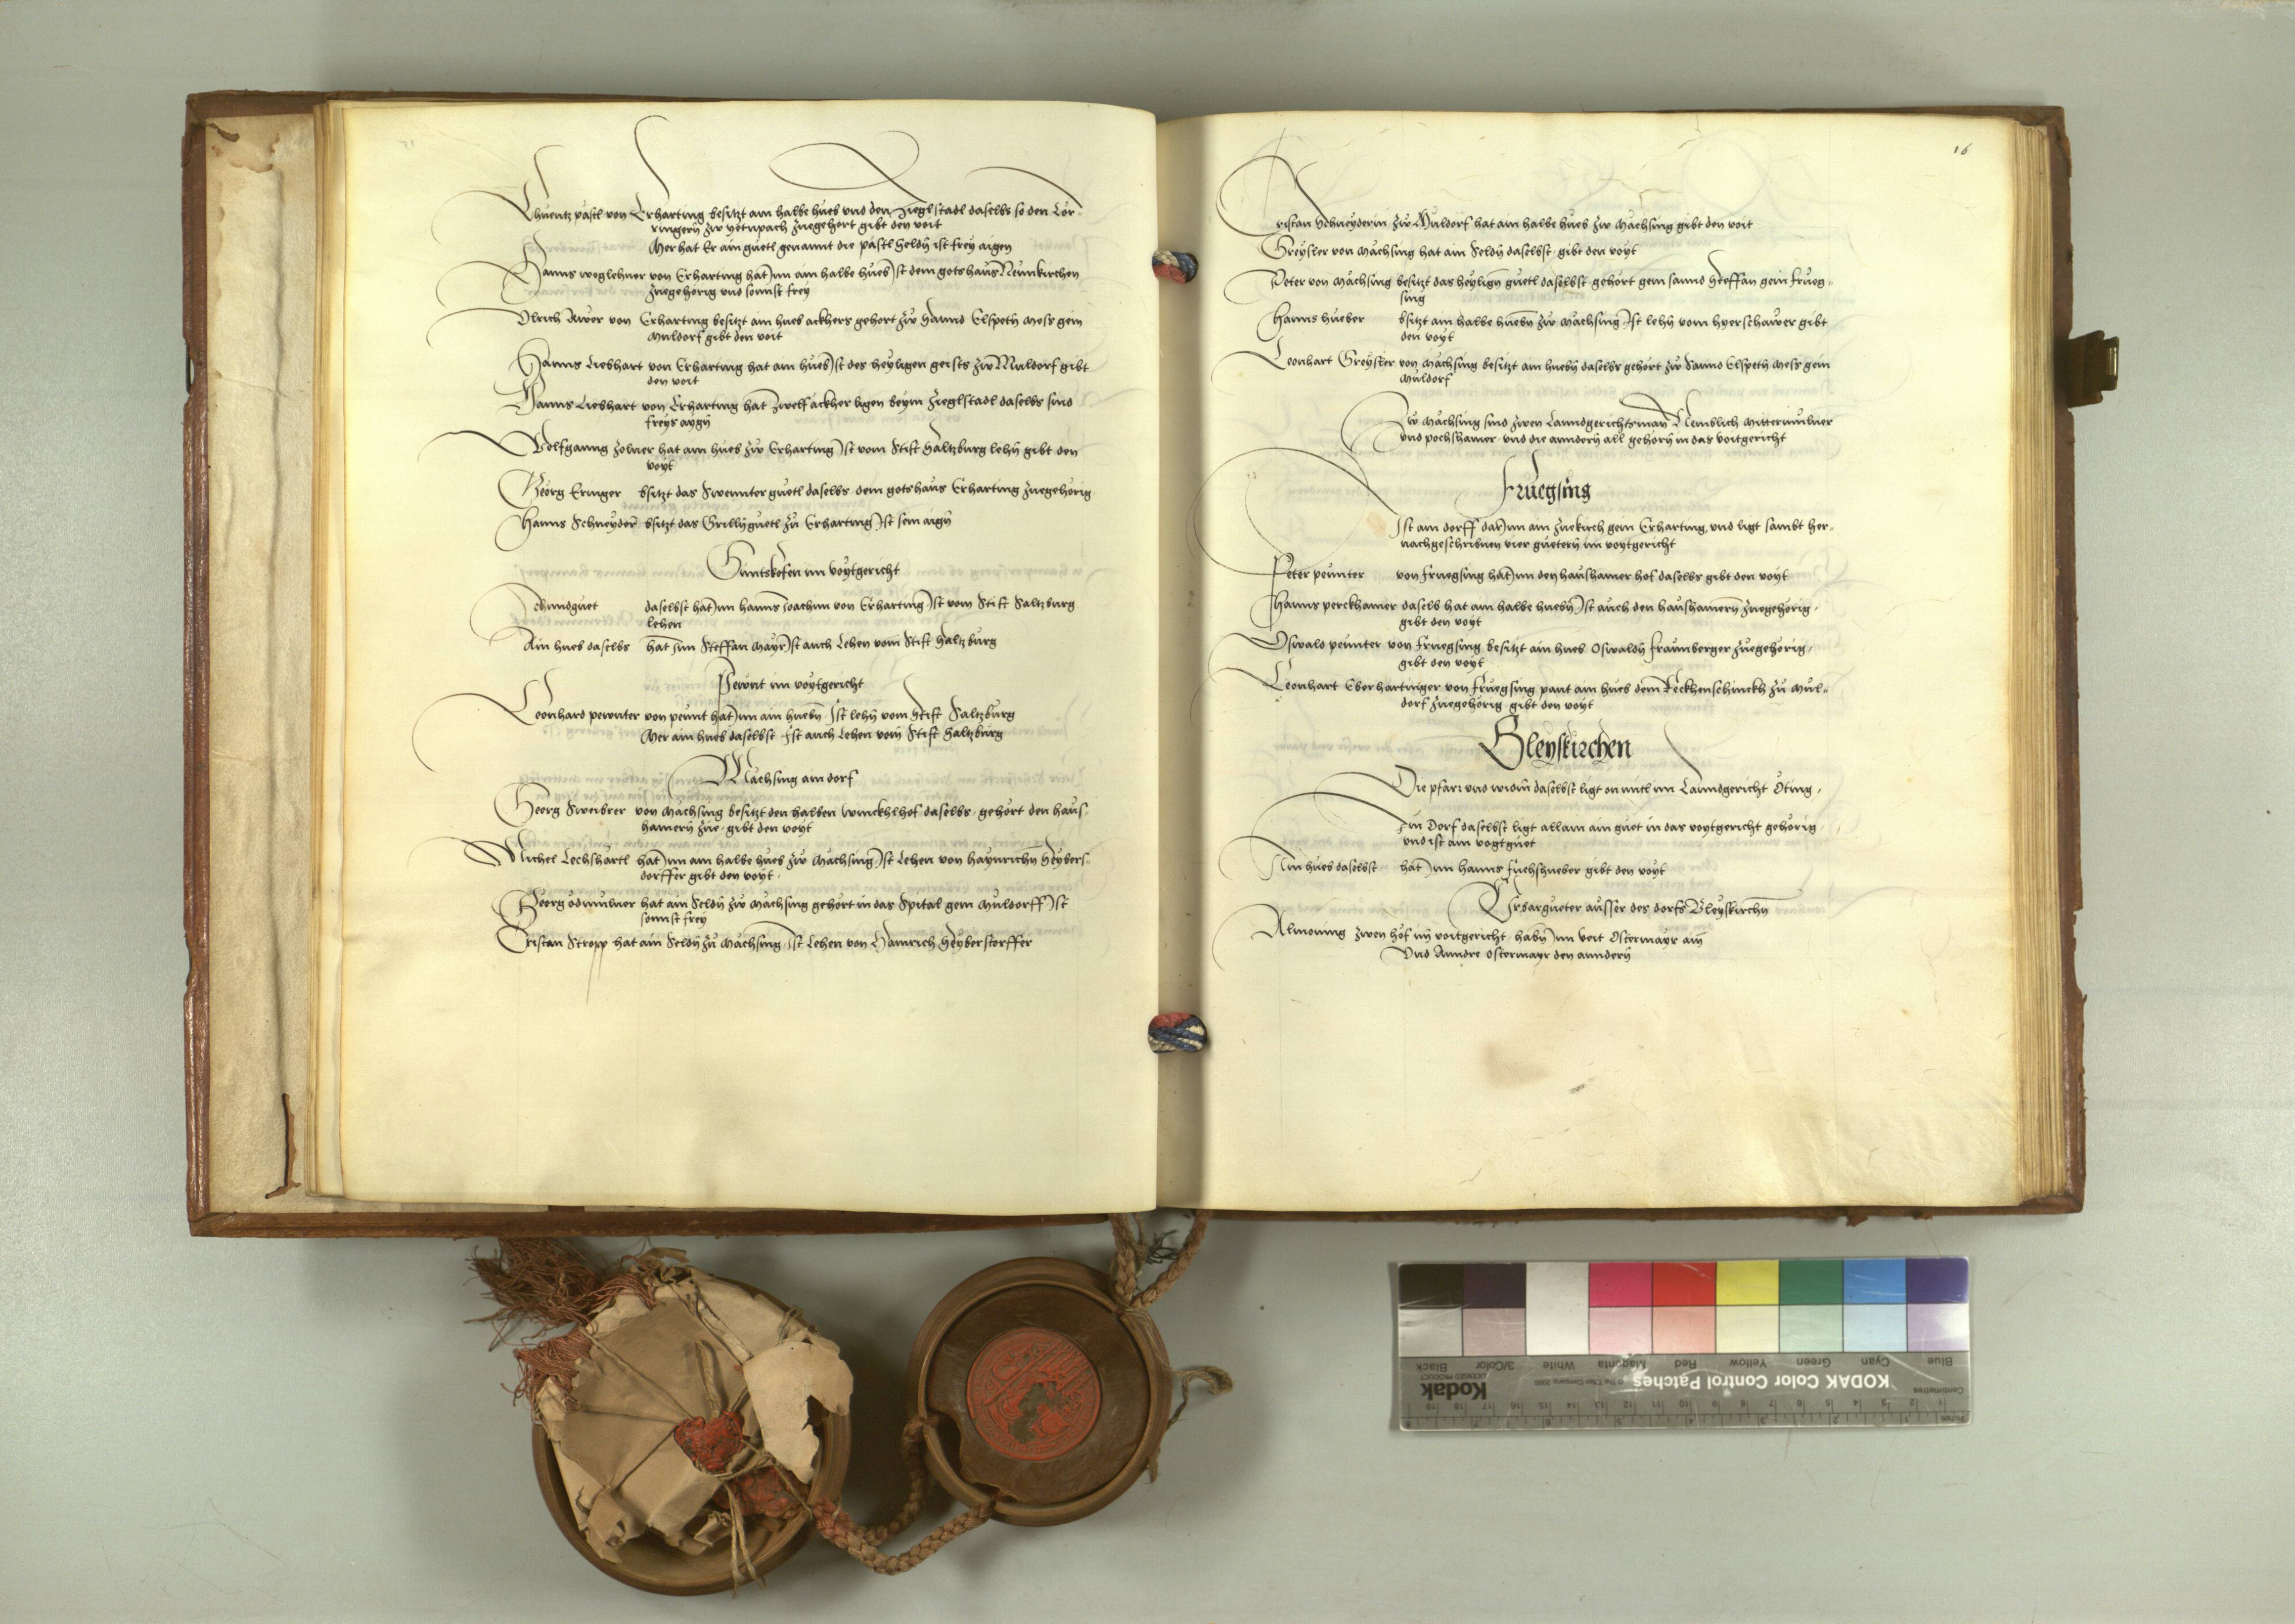 Chuentz pástl von Erharting besitzt ain halbe hueb vnd den Ziegl stadl daselbs so den Tor-
ringern zw zuegehort gibt den voit
Mer hat Er ain guetl genannt die pástl Seldn ist frey aigen
Hanns weglehner von Erharting hat Inn ain halbe hueb Ist dem gotshaus Neunkirchen
zuegehorig vnd sonnst frey
Vlrich Awer von Erharting besitzt ain hueb ackhers gehort zw Sannd Elspeth mess gein
Muldorf gibt den voit
Hanns Liebhart von Erharting hat ain hueb Ist des heyligen geists zw Muldorf gibt
den voit
Hanns Liebhart von Erharting hat zwelf áckher ligen beym Zieglstadl daselbs sind
freys aygn
Wolfganng Zolner hat ain hueb zw Erharting Ist vom Stift Saltzburg lehn gibt den
voyt
Georg Eringer bsitzt das guetl daselbs dem gotshaus Erharting zuegehorig
Hanns Schneyder bsitzt das Grillnguetl zu Erharting Ist sein aign
Guntzkofen im voytgericht
daselbst hat Inn hanns Joachim von Erharting Ist vom Stift Saltzburg
lehen
Ain hueb daselbs hat Inn Steffan mayr Ist auch Lehen vom Stift Saltzburg
Pewnt im voytgericht
Leonhard pewnter von peunt hat Inn ain huebn Ist lehn vom Stift Saltzburg
Mer ain hueb daselbst Ist auch Lehen vom Stift Saltzburg
Máchsing ain dorf
Georg von Máchsing besitzt den halben winckhlhof daselbs gehort den haus-
hamern zue gibt den voyt
Michel Lechshartl hat Inn ain halbe hueb zw Máchsing Ist Lehen von haynrichn Seybers-
dorffer gibt den voyt
Georg ódmulner hat ain Seldn zw Máchsing gehort in das Spital gein Muldorff Ist
sonnst frey
Cristan Stropp hat ain Seldn zu Máchsing Ist Lehen von Hainrich Seyberstorffer
16
Cristan Schneyderin zw Muldorf hat ain halbe hueb zw Máchsing gibt den voit
Greysler von Máchsing hat ain Seldn daselbst gibt den voyt
Peter von Máchsing besitzt das heyligen guetl daselbst gehort gein sannd Steffan gein frueg-
sing
Hanns hueber bsitzt ain halbe huebn zw Máchsing Ist lehn vom hyerschawer gibt
den voyt
Leonhart Greysler von Máchsing besitzt ain huebn daselbs gehort zw Sannd Elspeth mess gein
Muldorf
Zw Máchsing sind zwen Lanndgerichtsman Nemblich Mittermulner
vnd pochshamer vnd die anndern all gehorn in das voitgericht
Fruegsing
Ist ain dorff darInn ain zuekirch gein Erharting vnd ligt sambt her-
nachgeschribnen vier guetern im voytgericht
Peter peunter von fruegsing hat Inn den haushamer hof daselbs gibt den voyt
Hanns perckhamer daselb hat ain halbe huebn Ist auch den haushamern zuegehorig
gibt den voyt
Oswald peunter von fruegsing besitzt ain hueb Oswaldn fraunberger zuegehorig
gibt den voyt
Leonhart Eberhartinger von fruegsing paut ain hueb dem Teckhenschinckh zu Mul-
dorf zuegehorig gibt den voyt
Pleyskirchen
Die pfarr vnd widm daselbst ligt on mitl im Lanndgericht Oting
Im Dorf daselbst ligt allain ain guet in das voytgericht gehorig
vnd ist ain vogtguet
Ain hueb daselbst hat Inn hanns fuchshueber gibt den voyt
Urbargueter ausser des dorfs Pleyskirchn
Almoning zwen hof im voitgericht habn Inn Veit Ostermayr ain
Vnd Anndre Ostermayr den anndern
KODAK Color Control Patches
Kodak
LICENSED PRODUCT
Centimetres
1 2 3 4 5 6 7 8 9 10 11 12 13 14 15 16 17 18 19
Blue Cyan Green Yellow Red Magenta White 3/Color Black